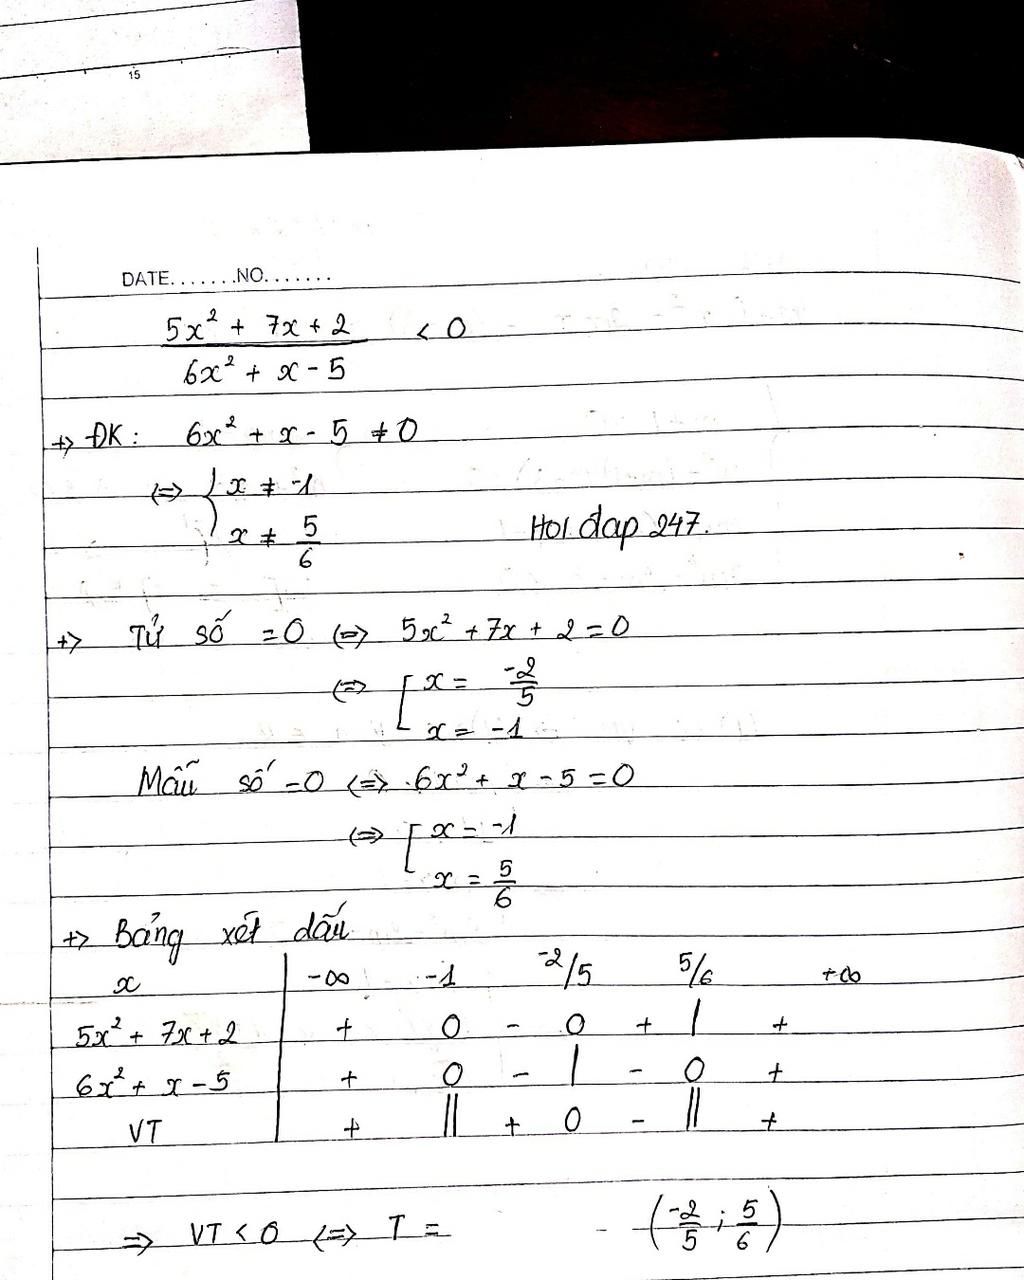 15
DATE.......NO.......
5x² + 7x + 2 < 0
6x² + x - 5
+> ĐK: 6x² + x - 5 ≠ 0
<=> { x ≠ -1
x ≠ 5/6
Hoi đap 247.
+> Tử số = 0 <=> 5x² + 7x + 2 = 0
<=> [ x = -2/5
x = -1
Mẫu số = 0 <=> 6x² + x - 5 = 0
<=> [ x = -1
x = 5/6
+> Bảng xét dấu
x | -∞ -1 -2/5 5/6 +∞
5x² + 7x + 2 | + 0 - 0 + | +
6x² + x - 5 | + 0 - | - 0 +
VT | + || + 0 - || +
=> VT < 0 <=> T = (-2/5 ; 5/6)